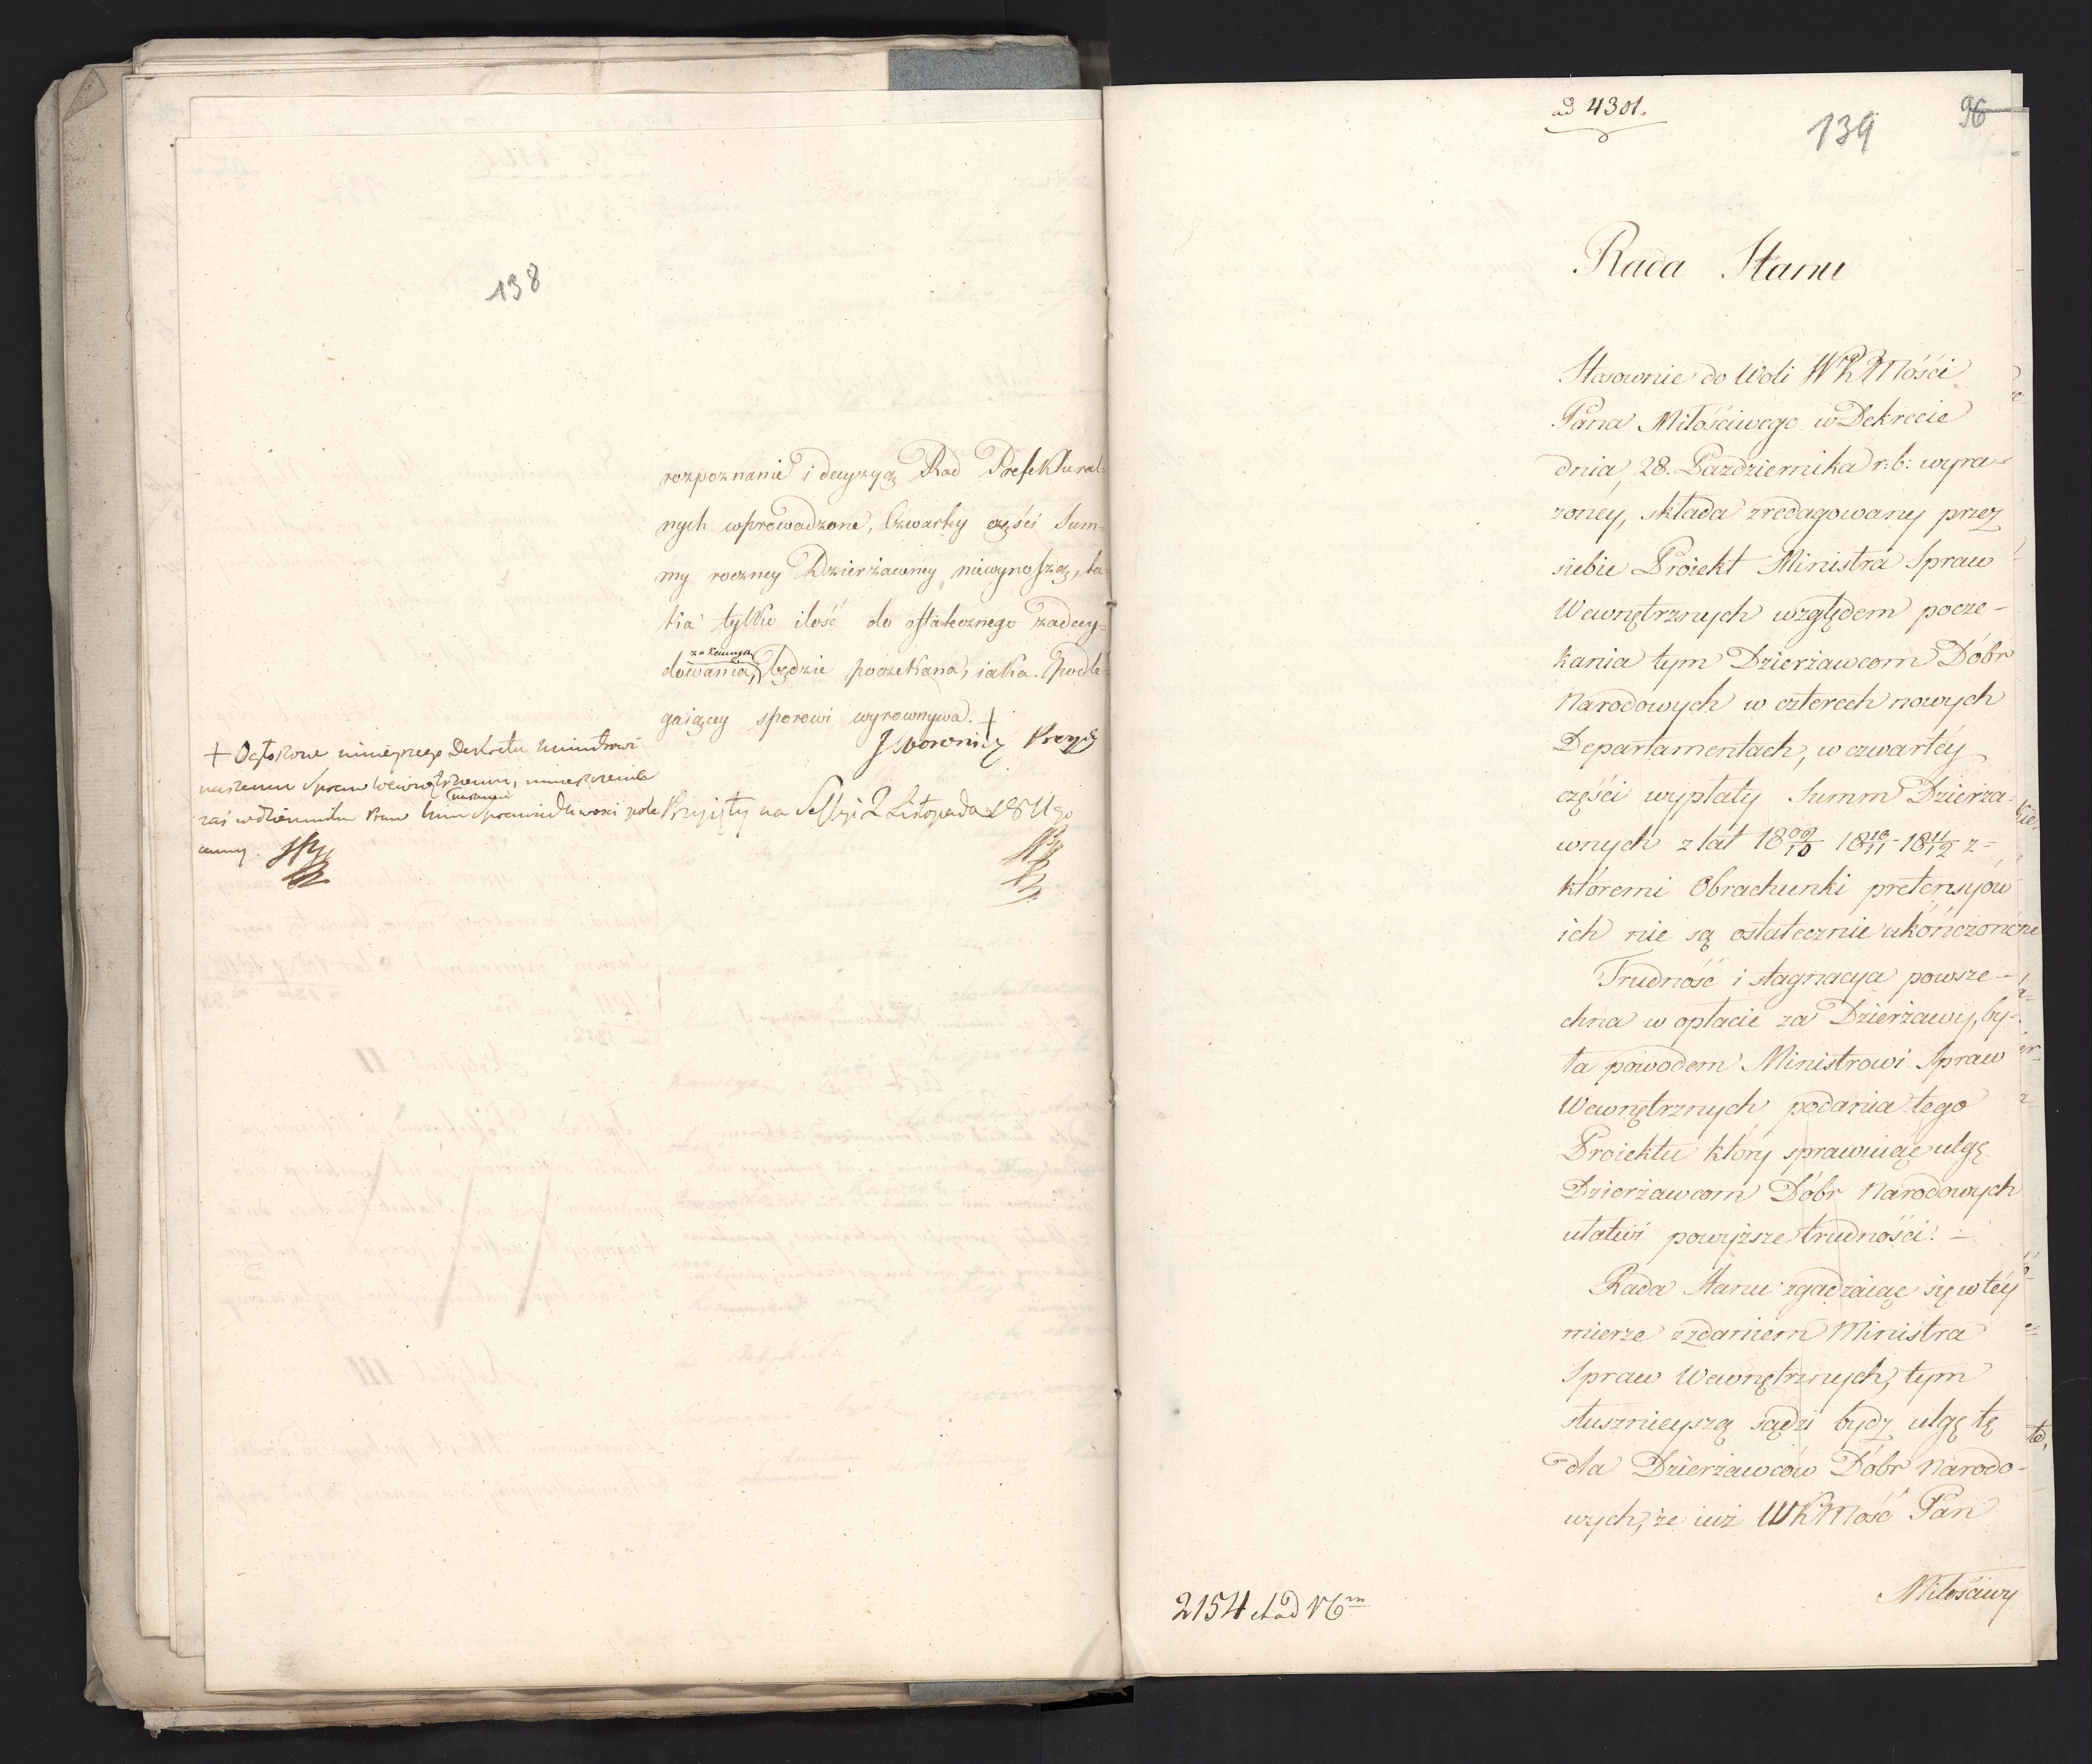 138
rozpoznanie i decyzyą Rad Prefektural=
nych wprowadzone, Czwartey części Sum=
my roczney Dzierżawney niewynoszą, ta=
kia tylko ilość do ostatecznego zadecy=
za kaucyą
dowania, będzie poczekana, iaka podle=
gaiącey sporowi wyrownywa. +
+ Ogłoszenie ninieyszego Dekretu Ministrowi
naszemu Spraw Wewnętrznych, umieszczenie
naszemu
zaś w dzienniku Praw Min Sprawiedliwości pole
camy.
Przyięty na Sessyi 2 Listopada 1811go
ad 4301.
139
96
Rada Stanu
Stosownie do Woli WKMości
Pana Miłościwego w Dekrecie
dnia 28. Października r: b: wyra=
zoney, składa zredagowany przez
siebie Proiekt Ministra Spraw
Wewnętrznych względem pocze-
kania tym Dzierżawcom Dóbr
Narodowych w czterech nowych
Departamentach, w czwartéy
części wypłaty Summ Dzierża=
wnych z lat 1809/10 1810/11 1811/12 z=
któremi Obrachunki pretensyów
ich nie są ostatecznie ukończone
Trudność i stagnacya powsze-
chna w opłacie za Dzierżawy, by-
ła powodem Ministrowi Spraw
Wewnętrznych podania tego
Proiektu który sprawuiąc ulgę
Dzierżawcom Dóbr Narodowych
ułatwi powyższe trudności.
Rada Stanu zgadzaiąc się w téy
mierze z zdaniem Ministra
Spraw Wewnętrznych, tym
słusznieyszą sądzi bydz ulgę tę
dla Dzierżawców Dóbr Narodo-
wych, że iuż WKMość Pan
Miłościwy
2154 et ad N6m